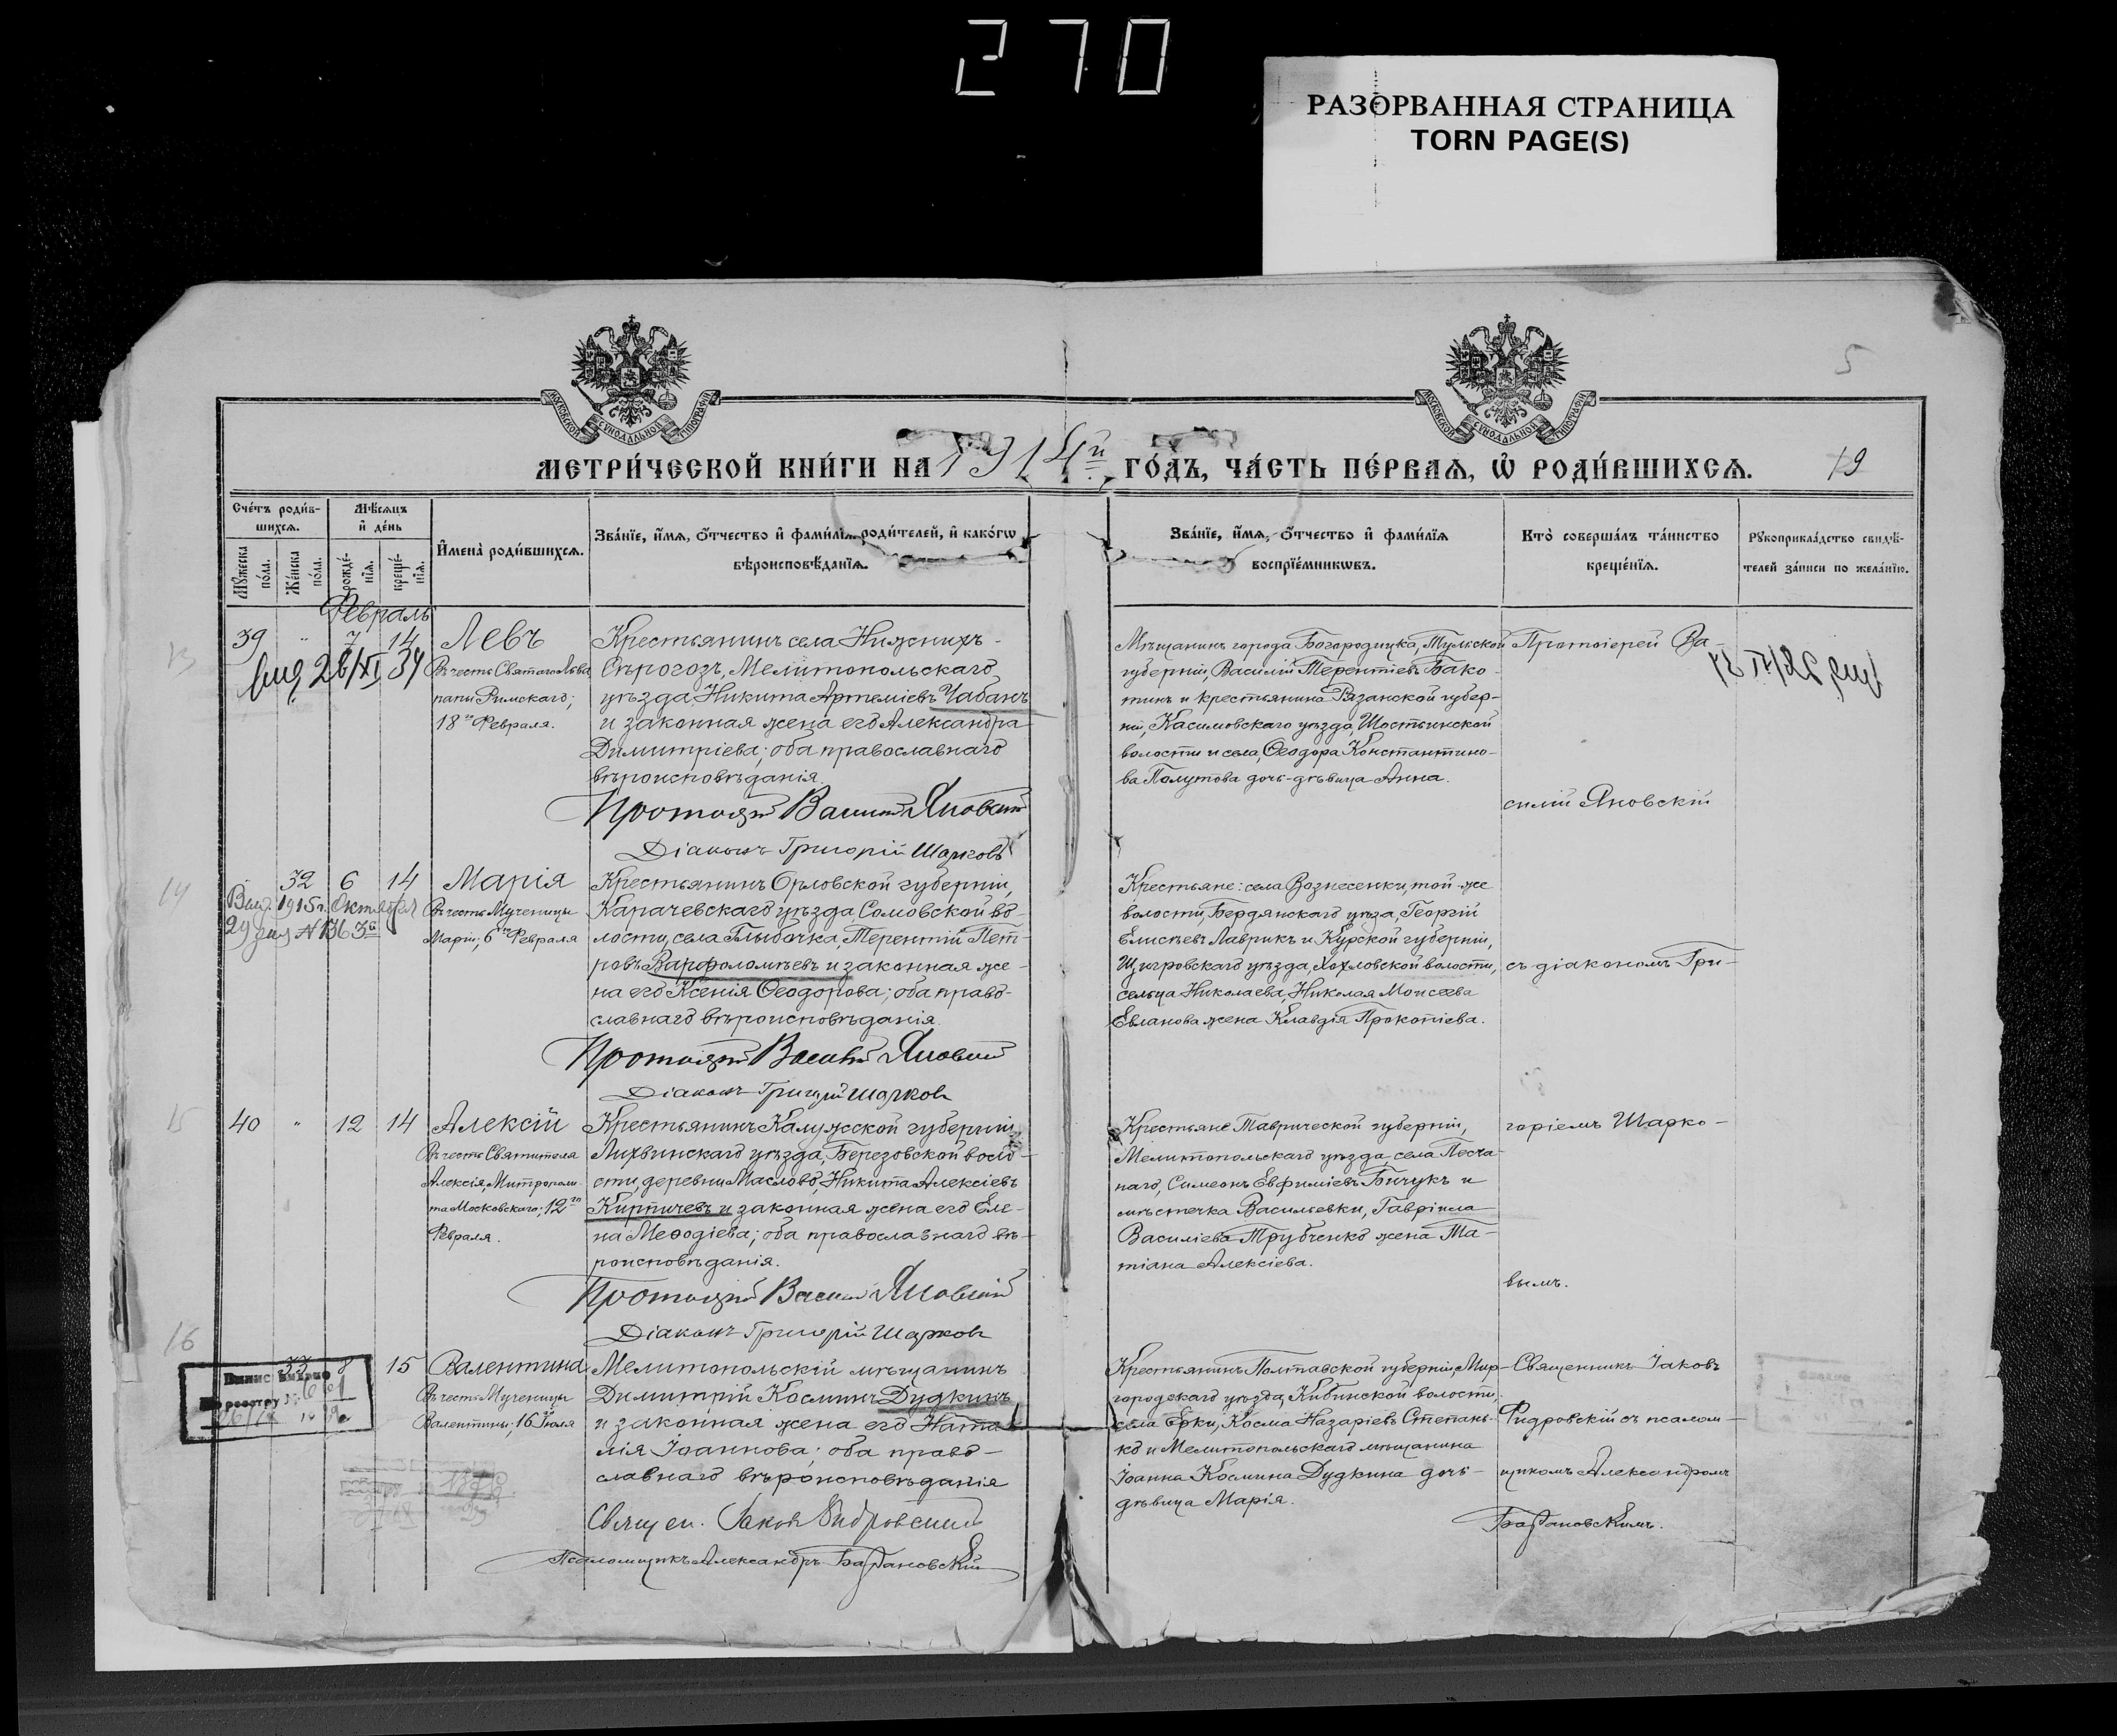 270
РАЗОРВАННАЯ СТРАНИЦА
TORN PAGE(S)
5
МОСКОВСКОЙ СУНОДАЛЬНОЙ ТИПОГРАФІИ
МОСКОВСКОЙ СУНОДАЛЬНОЙ ТИПОГРАФІИ
МЕТРИ́ЧЕСКОЙ КНИ́ГИ НА 1914й ГО́ДЪ, ЧА́СТЬ ПЕ́РВАЯ, Ѿ РОДИ́ВШИХСЯ.
19
Сче́тъ роди́в-
шихся.
Мѣсяцъ
и де́нь
Мужеска
по́ла.
Же́нска
по́ла.
рожде́-
нїя.
креще́-
нїя.
Имена̀ роди́вшихся.
Зва́нїе, и́мя, о́тчество и фами́лїя роди́телей, и како́гѡ
вѣроисповѣ́данїя.
Зва́нїе, и́мя, о́тчество и фами́лїя
воспрїе́мникѡвъ.
Кто̀ соверша́лъ та́инство
креще́нїя.
Рукоприкла́дство свидѣ́-
телей за́писи по жела́нїю.
Февраль
13
39 " 7 14
28/XI 34
Левъ
Въ честь Святаго Льва,
папы Римскаго;
18го Февраля.
Крестьянинъ села Нижнихъ-
Сѣрогозъ, Мелитопольскаго
уѣзда, Никита Артеміевъ Чабанъ
и законная жена его Александра
Димитріева; оба православнаго
вѣроисповѣданія.
Протоіерей Василій Яновскій
Діаконъ Григорій Шарковъ
Мѣщанинъ города Богородицка, Тульской
губерніи, Василій Терентіевъ Бако-
тинъ и крестьянина Рязанской губер-
ніи, Касимовскаго уѣзда, Шостьинской
волости и села, Ѳеодора Константино-
ва Полутова дочь-дѣвица Анна.
Протоіерей Ва-
силій Яновскій
14
32 6 14
Выд. 1915 г. Октября
29 дня №
Марія
Въ честь Мученицы
Маріи; 6го Февраля
Крестьянинъ Орловской губерніи,
Карачевскаго уѣзда, Сомовской во-
лости, села Глыбочка, Терентій Пет-
ровъ Варфоломѣевъ и законная же-
на его Ксенія Ѳеодорова; оба право-
славнаго вѣроисповѣданія.
Протоіерей Василій Яновскій
Діаконъ Григорій Шарковъ
Крестьяне: села Вознесенки, той-же
волости, Бердянскаго уѣзда, Георгій
Елисѣевъ Лаврикъ и Курской губерніи,
Щигровскаго уѣзда, Хохловской волости,
сельца Николаева, Николая Моисеева
Евланова жена Клавдія Прокопіева.
съ діакономъ Гри-
15
40 " 12 14
Алексій
Въ честь Святителя
Алексія, Митрополи-
та Московскаго; 12го
Февраля.
Крестьянинъ Калужской губерніи,
Лихвинскаго уѣзда, Березовской воло-
сти, деревни Маслово, Никита Алексіевъ
Кирпичевъ и законная жена его Еле-
на Меѳодіева; оба православнаго вѣ-
роисповѣданія.
Протоіерей Василій Яновскій
Діаконъ Григорій Шарковъ
Крестьяне Таврической губерніи,
Мелитопольскаго уѣзда села Песча-
наго, Симеонъ Евфиміевъ Бичукъ и
мѣстечка Васильевки, Гавріила
Василіева Трубченко жена Та-
тіана Алексіева.
горіемъ Шарко-
вымъ.
16
33 8 15
по реестру №
Валентина
Въ честь Мученицы
Валентины; 16 Іюля
Мелитопольскій мѣщанинъ
Димитрій Косминъ Дудкинъ
и законная жена его Ната-
лія Іоаннова; оба право-
славнаго вѣроисповѣданія
Священ. Іаковъ Фидровскій
Псаломщикъ Александръ Барановскій
Крестьянинъ Полтавской губерніи, Мир-
городскаго уѣзда, Кибинской волости,
села Ерки, Косма Назаріевъ Степань-
ко и Мелитопольскаго мѣщанина
Іоанна Космина Дудкина дочь-
дѣвица Марія.
Священникъ Іаковъ
Фидровскій съ псалом-
щикомъ Александромъ
Барановскимъ.